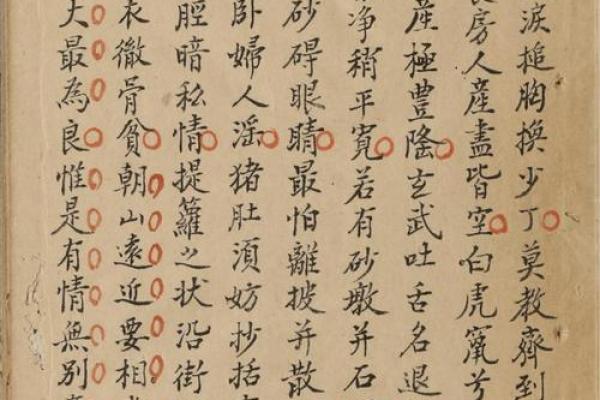 淚搥胸換少丁莫教齊到
房人產盡皆空白虎窰兮
產極豊隆玄武吐舌名退
净稍平寬若有砂墩并石
砂碍眼睛最怕離披并散
卧婦人滛猪肚湏妨抄括
脛暗私情提籮之状沿街
衣徹骨貧朝山遠近要相
大最為良惟是有情無別